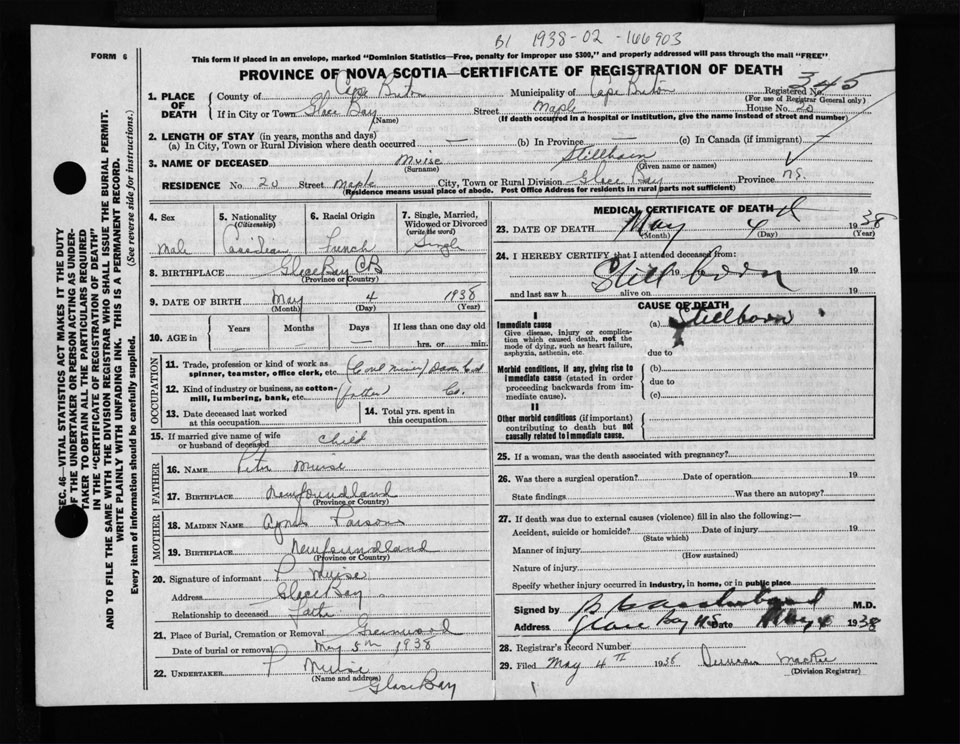 B1 1938-02-166903
FORM 6
This form if placed in an envelope, marked "Dominion Statistics—Free, penalty for improper use $300," and properly addressed will pass through the mail "FREE"
PROVINCE OF NOVA SCOTIA—CERTIFICATE OF REGISTRATION OF DEATH
1. PLACE OF DEATH
County of Cape Breton Municipality of Cape Breton Registered No. 345
(For use of Registrar General only)
If in City or Town Glace Bay Street Maple House No. 20
(Name) (If death occurred in a hospital or institution, give the name instead of street and number)
2. LENGTH OF STAY (in years, months and days)
(a) In City, Town or Rural Division where death occurred — (b) In Province — (c) In Canada (if immigrant) —
3. NAME OF DECEASED Muise Stillborn
(Surname) (Given name or names)
RESIDENCE No. 20 Street Maple City, Town or Rural Division Glace Bay Province N.S.
(Residence means usual place of abode. Post Office Address for residents in rural parts not sufficient)
4. Sex 5. Nationality 6. Racial Origin 7. Single, Married,
(Citizenship) Widowed or Divorced
(write the word)
Male Canadian French Single
8. BIRTHPLACE Glace Bay CB
(Province or Country)
9. DATE OF BIRTH May 4 1938
(Month) (Day) (Year)
10. AGE in Years Months Days If less than one day old
— — — hrs. or min.
OCCUPATION
11. Trade, profession or kind of work as
spinner, teamster, office clerk, etc. (Coal miner) Dom Coal
12. Kind of industry or business, as cotton-
mill, lumbering, bank, etc. (father) Co.
13. Date deceased last worked 14. Total yrs. spent in
at this occupation this occupation.
15. If married give name of wife
or husband of deceased child
FATHER
16. NAME Peter Muise
17. BIRTHPLACE Newfoundland
(Province or Country)
MOTHER
18. MAIDEN NAME Agnes Parsons
19. BIRTHPLACE Newfoundland
(Province or Country)
20. Signature of informant P Muise
Address Glace Bay
Relationship to deceased Father
21. Place of Burial, Cremation or Removal Greenwood
Date of burial or removal May 5th 1938
22. UNDERTAKER P Muise
(Name and address) Glace Bay
MEDICAL CERTIFICATE OF DEATH
23. DATE OF DEATH May 4 1938
(Month) (Day) (Year)
24. I HEREBY CERTIFY that I attended deceased from:
Still born 19 19
and last saw h alive on 19
CAUSE OF DEATH
I
Immediate cause (a) Stillborn
Give disease, injury or complica-
tion which caused death, not the
mode of dying, such as heart failure,
asphyxia, asthenia, etc. due to
Morbid conditions, if any, giving rise to (b)
immediate cause (stated in order due to
proceeding backwards from im-
mediate cause). (c)
II
Other morbid conditions (if important)
contributing to death but not
causally related to immediate cause.
25. If a woman, was the death associated with pregnancy?
26. Was there a surgical operation? Date of operation 19
State findings Was there an autopsy?
27. If death was due to external causes (violence) fill in also the following:—
Accident, suicide or homicide? Date of injury 19
(State which)
Manner of injury
(How sustained)
Nature of injury
Specify whether injury occurred in industry, in home, or in public place
Signed by M.D.
Address Glace Bay NS Date May 4 1938
28. Registrar's Record Number
29. Filed May 4th 1938 Duncan MacRae
(Division Registrar)
SEC. 46—VITAL STATISTICS ACT MAKES IT THE DUTY
OF THE UNDERTAKER OR PERSON ACTING AS UNDER-
TAKER TO OBTAIN ALL THE PARTICULARS REQUIRED
IN THE "CERTIFICATE OF REGISTRATION OF DEATH"
AND TO FILE THE SAME WITH THE DIVISION REGISTRAR WHO SHALL ISSUE THE BURIAL PERMIT.
WRITE PLAINLY WITH UNFADING INK. THIS IS A PERMANENT RECORD.
Every item of information should be carefully supplied. (See reverse side for instructions.)